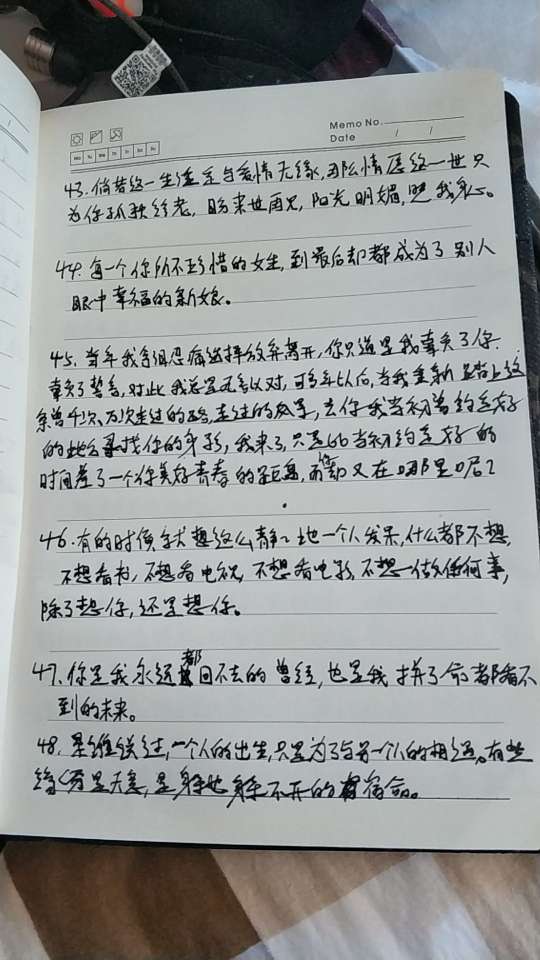 Memo No.
Date / /
Mo Tu We Th Fr Sa Su
43. 倘若这一生注定与爱情无缘,那么情愿这一世只
为你孤独终老,盼来世再见,阳光明媚,照我心。
44. 每一个你所不珍惜的女生,到最后却都成为了别人
眼中幸福的新娘。
45. 当年我含泪忍痛选择放弃离开,你只道是我辜负了你
辜负了誓言,对此我总是无言以对,可多年以后,当我重新踏上这
条曾千次,万次走过的路,走过的风景,去你我当初曾约定好
的地方寻找你的身影,我来了,只是比当初约定好的
时间差了一个你美好青春的距离,而你却又在哪里呢?
46. 有的时候就想这么静静地一个人发呆,什么都不想,
不想看书,不想看电视,不想看电影,不想做任何事,
除了想你,还是想你。
47. 你是我永远都回不去的曾经,也是我拼了命都看不
到的未来。
48. 一个人的出生,只是为了与另一个人的相遇。有些
缘分是天意,是躲也躲不开的宿命。